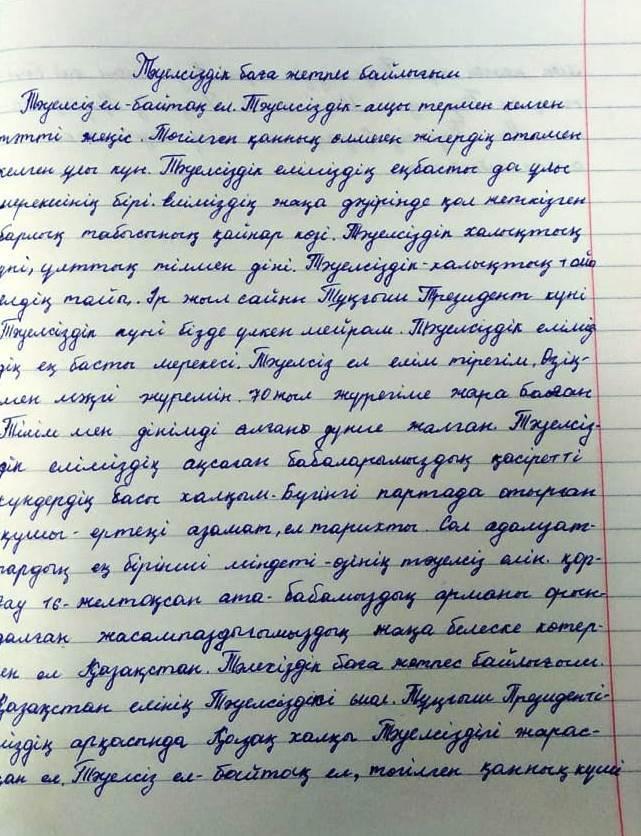 Тәуелсіздік баға жетпес байлығым
Тәуелсіз ел-байтақ ел. Тәуелсіздік-ащы термен келген
тәтті жеңіс. Төгілген қанның сөнбеген жігердің отымен
келген ұлы күн. Тәуелсіздік еліміздің ең басты да ұлы
мерекесінің бірі. Еліміздің жаңа дәуірінде қол жеткізген
барлық табысының қайнар көзі. Тәуелсіздік халықтың
үні, ұлттың тілмен діні. Тәуелсіздік-халықтың
елдің Әр жыл сайын Тұңғыш Президент күні
Тәуелсіздік күні бізде үлкен мейрам. Тәуелсіздік елімiз
дің ең басты мерекесі. Тәуелсіз ел елім тірегім. Өзің-
мен мәңгі жүремін. 70 жыл жүрегіме жара болған
Тілім мен дінімді алғанo дүние жалған. Тәуелсіз-
дік еліміздің аңсаған бабаларымыздың қасіретті
күндердің басы халқым. Бүгінгі партада отырған
оқушы- ертеңі азамат, ел тарихты. Сол адамзат-
тардың ең бірінші міндеті-өзінің тәуелсіз елін. қор-
ғау 16-желтоқсан ата-бабамыздың арманы орын-
далған жасампаздығымыздың жаңа белеске көтер-
ген ел Қазақстан. Тәуелсіздік баға жетпес байлығым.
Қазақстан елінің Тәуелсіздікі Тұңғыш Президенті-
міздің арқасында Қазақ халқы Тәуелсіздігі жарас-
қан ел. Тәуелсіз ел-байтақ ел, төгілген қанның күші